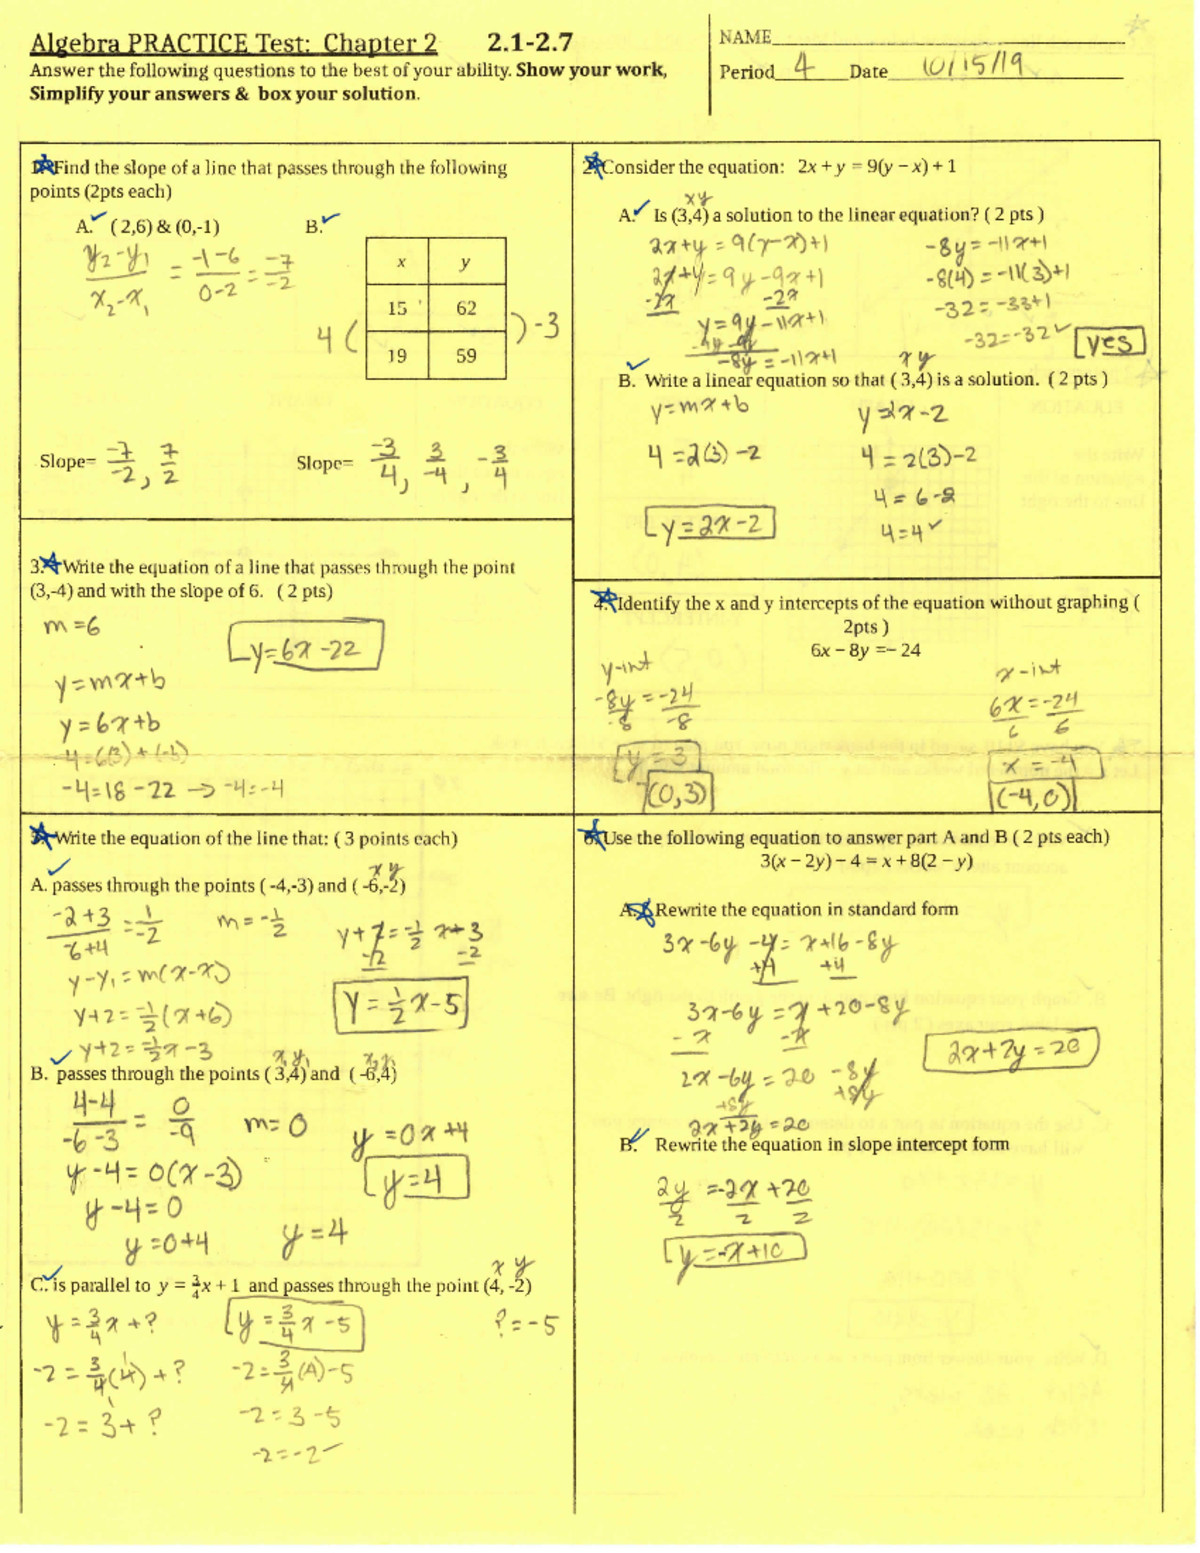 Algebra PRACTICE Test: Chapter 2 2.1-2.7
NAME
Answer the following questions to the best of your ability. Show your work,
Period 4 Date 10/15/19
Simplify your answers & box your solution.
Find the slope of a line that passes through the following
points (2pts each)
A. (2,6) & (0,-1) B.
y₂-y₁/x₂-x₁ = -1-6/0-2 = -7/-2
x y
15 62
19 59
4 ( ) -3
Slope= -7/-2, 7/2
Slope= -3/4, 3/-4, -3/4
2. Consider the equation: 2x + y = 9(y – x) + 1
x y
A. Is (3,4) a solution to the linear equation? ( 2 pts )
2x+y = 9(y-x)+1
2x+y = 9y-9x+1
-2x -2x
y=9y-11x+1
-9y -9y
-8y = -11x+1
-8y = -11x+1
-8(4) = -11(3)+1
-32 = -33+1
-32=-32 ✓
yes
x y
B. Write a linear equation so that ( 3,4) is a solution. ( 2 pts )
y=mx+b
4 =2(3) -2
y=2x-2
y=2x-2
4 = 2(3)-2
4 = 6-2
4=4 ✓
3. Write the equation of a line that passes through the point
(3,-4) and with the slope of 6. ( 2 pts)
m=6
y=6x-22
y=mx+b
y=6x+b
-4=18-22 -> -4=-4
4. Identify the x and y intercepts of the equation without graphing (
2pts )
6x – 8y =– 24
y-int
-8y/-8 = -24/-8
y=3
(0,3)
x-int
6x/6 = -24/6
x = -4
(-4,0)
Write the equation of the line that: ( 3 points each)
x y
A. passes through the points ( -4,-3) and ( -6,-2)
-2+3/-6+4 = 1/-2
m=-1/2
y-y₁=m(x-x₁)
y+2=-1/2(x+6)
y+2=-1/2x-3
y+2=-1/2 x-3
-2 -2
y=-1/2x-5
x₁ y₁ x₂ y₂
B. passes through the points ( 3,4) and ( -6,4)
4-4/-6-3 = 0/-9
m=0
y-4=0(x-3)
y-4=0
y=0+4
y=4
y=0x+4
y=4
x y
C. is parallel to y = 3/4x + 1 and passes through the point (4, -2)
y=3/4x+?
-2=3/4(4)+?
-2=3+?
y=3/4x-5
-2=3/4(4)-5
-2=3-5
-2=-2 ✓
?=-5
6. Use the following equation to answer part A and B ( 2 pts each)
3(x – 2y) – 4 = x + 8(2 – y)
A. Rewrite the equation in standard form
3x-6y-4=x+16-8y
+4 +4
3x-6y=x+20-8y
-x -x
2x-6y=20-8y
+8y +8y
2x+2y=20
2x+2y=20
B. Rewrite the equation in slope intercept form
2y/2 = -2x/2 + 20/2
y=-x+10